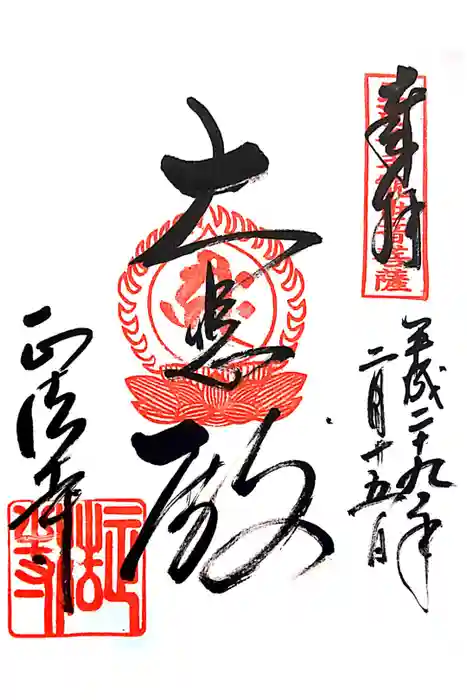 奉拝
平成二十九年
二月十五日
大悲殿
正法寺